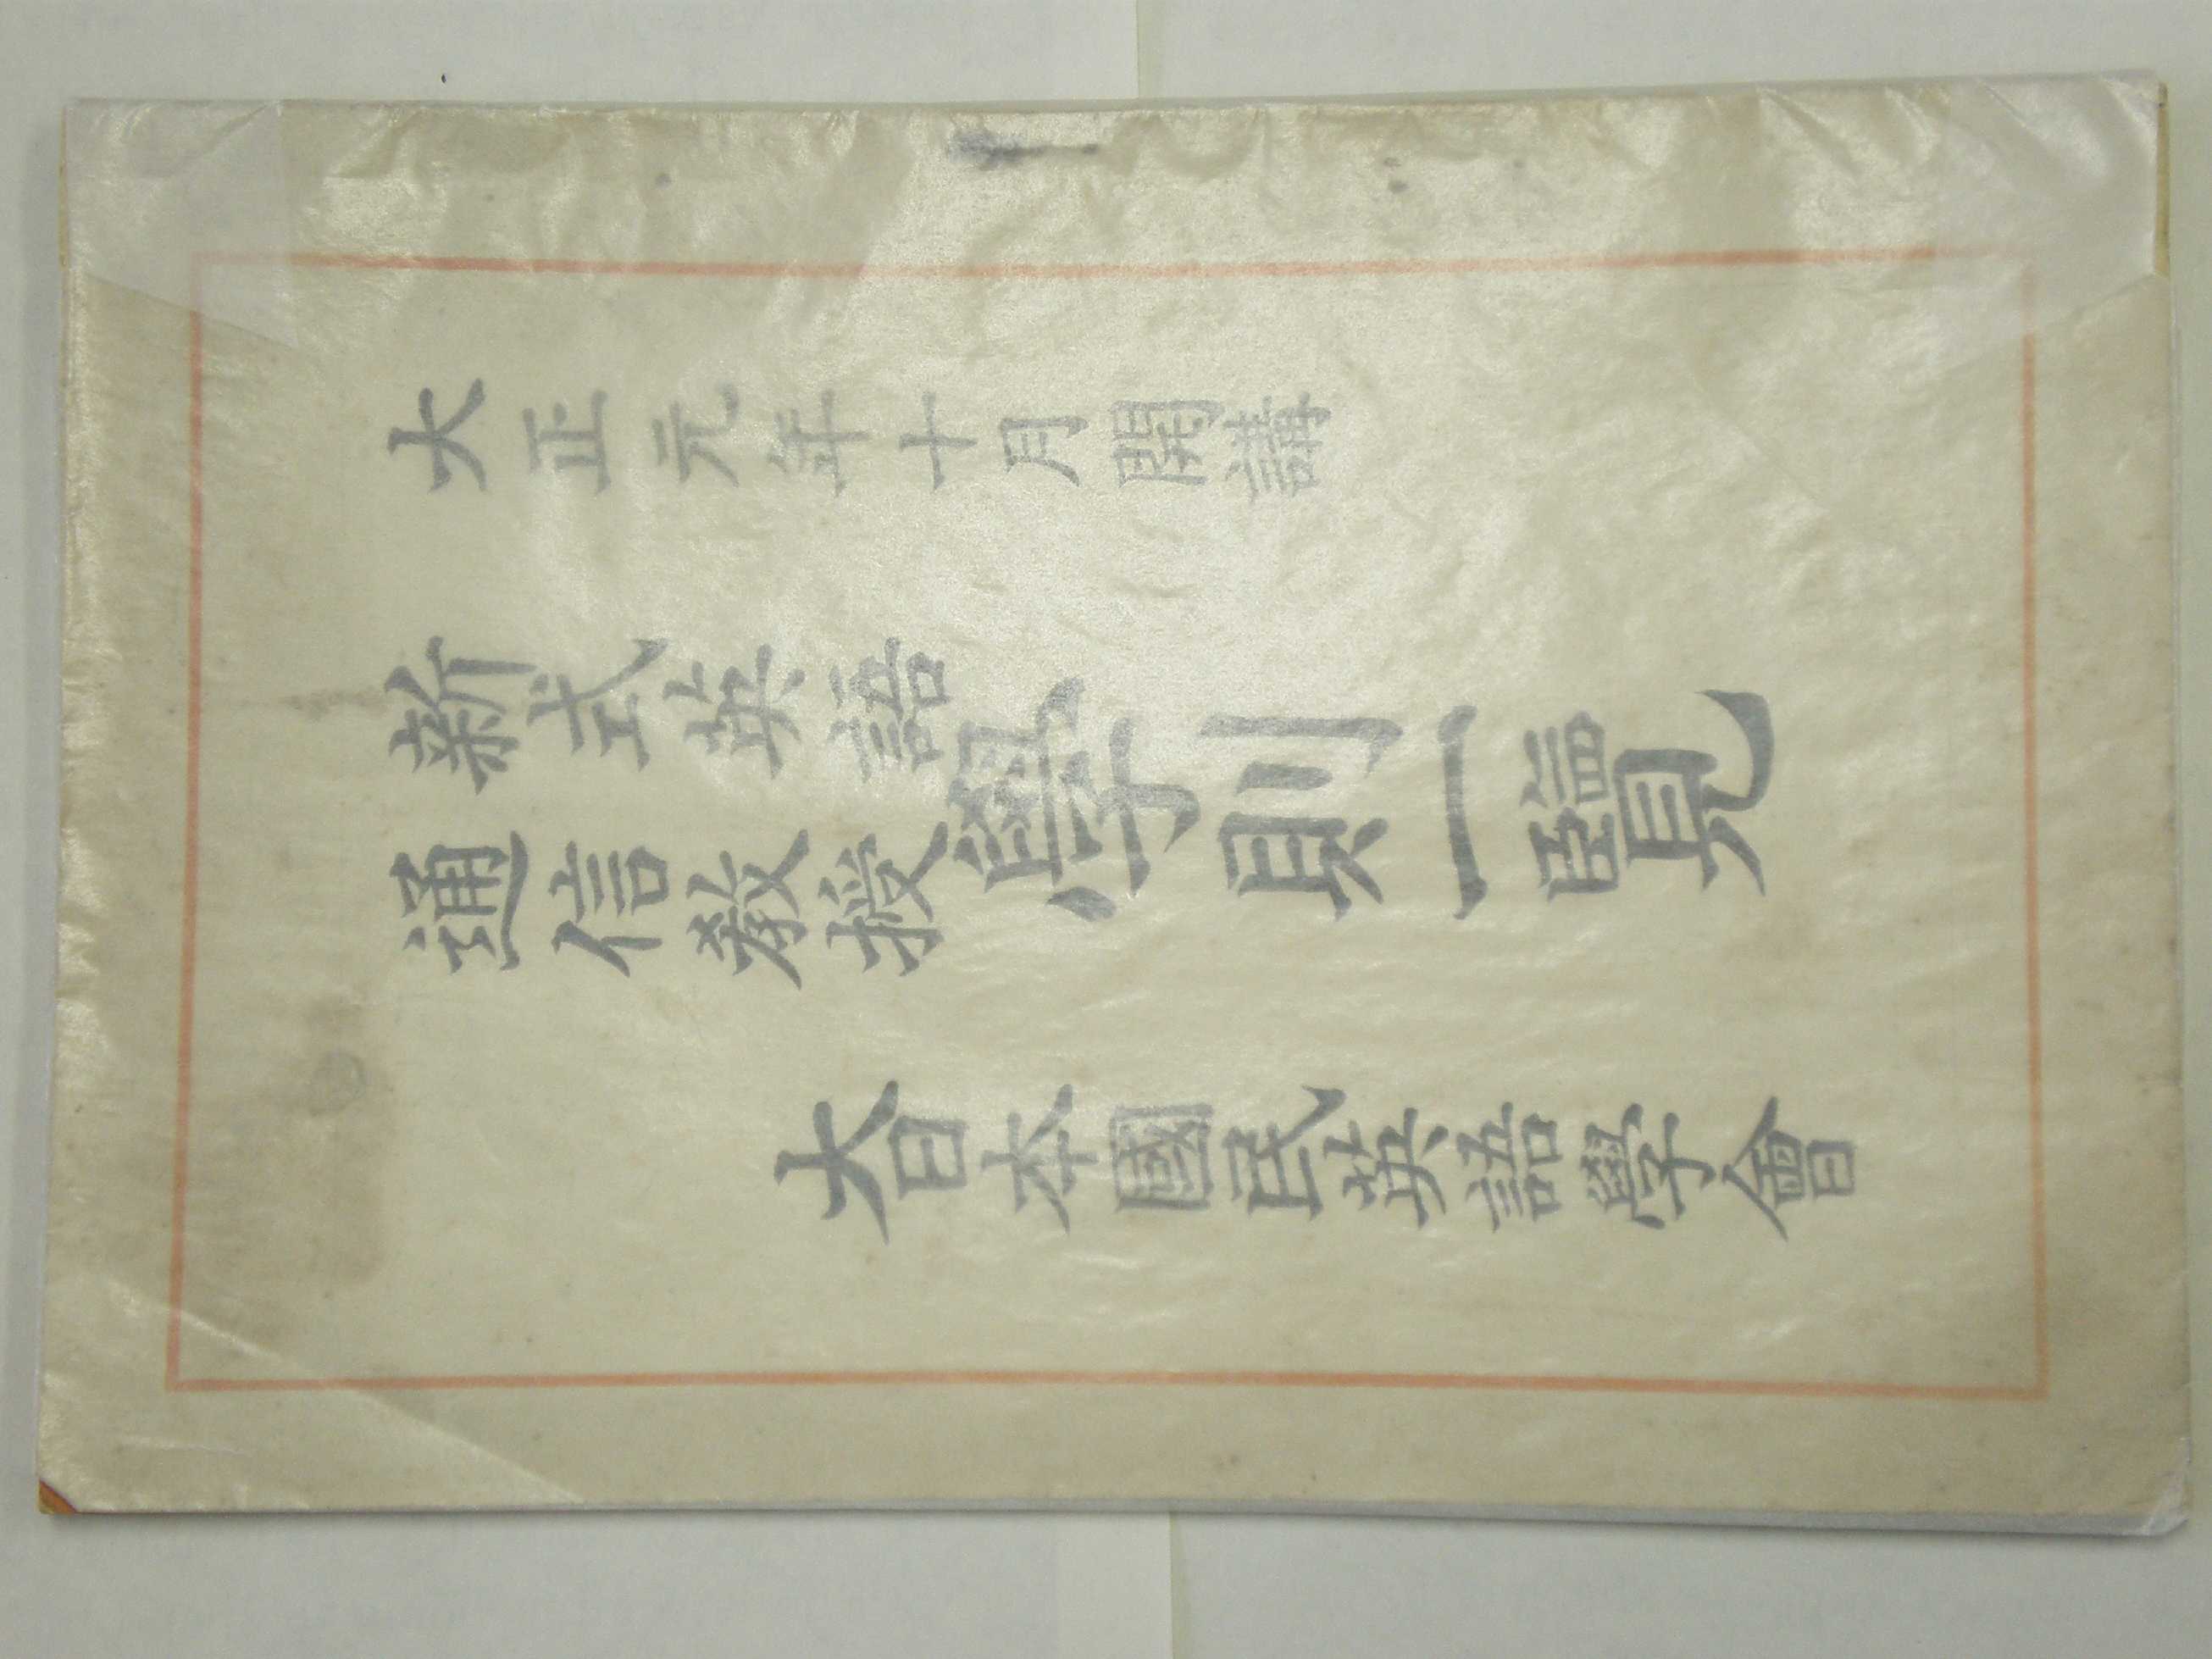 大正元年十月開講
新式英語
通信教授
學則一覽
大日本國民英語學會